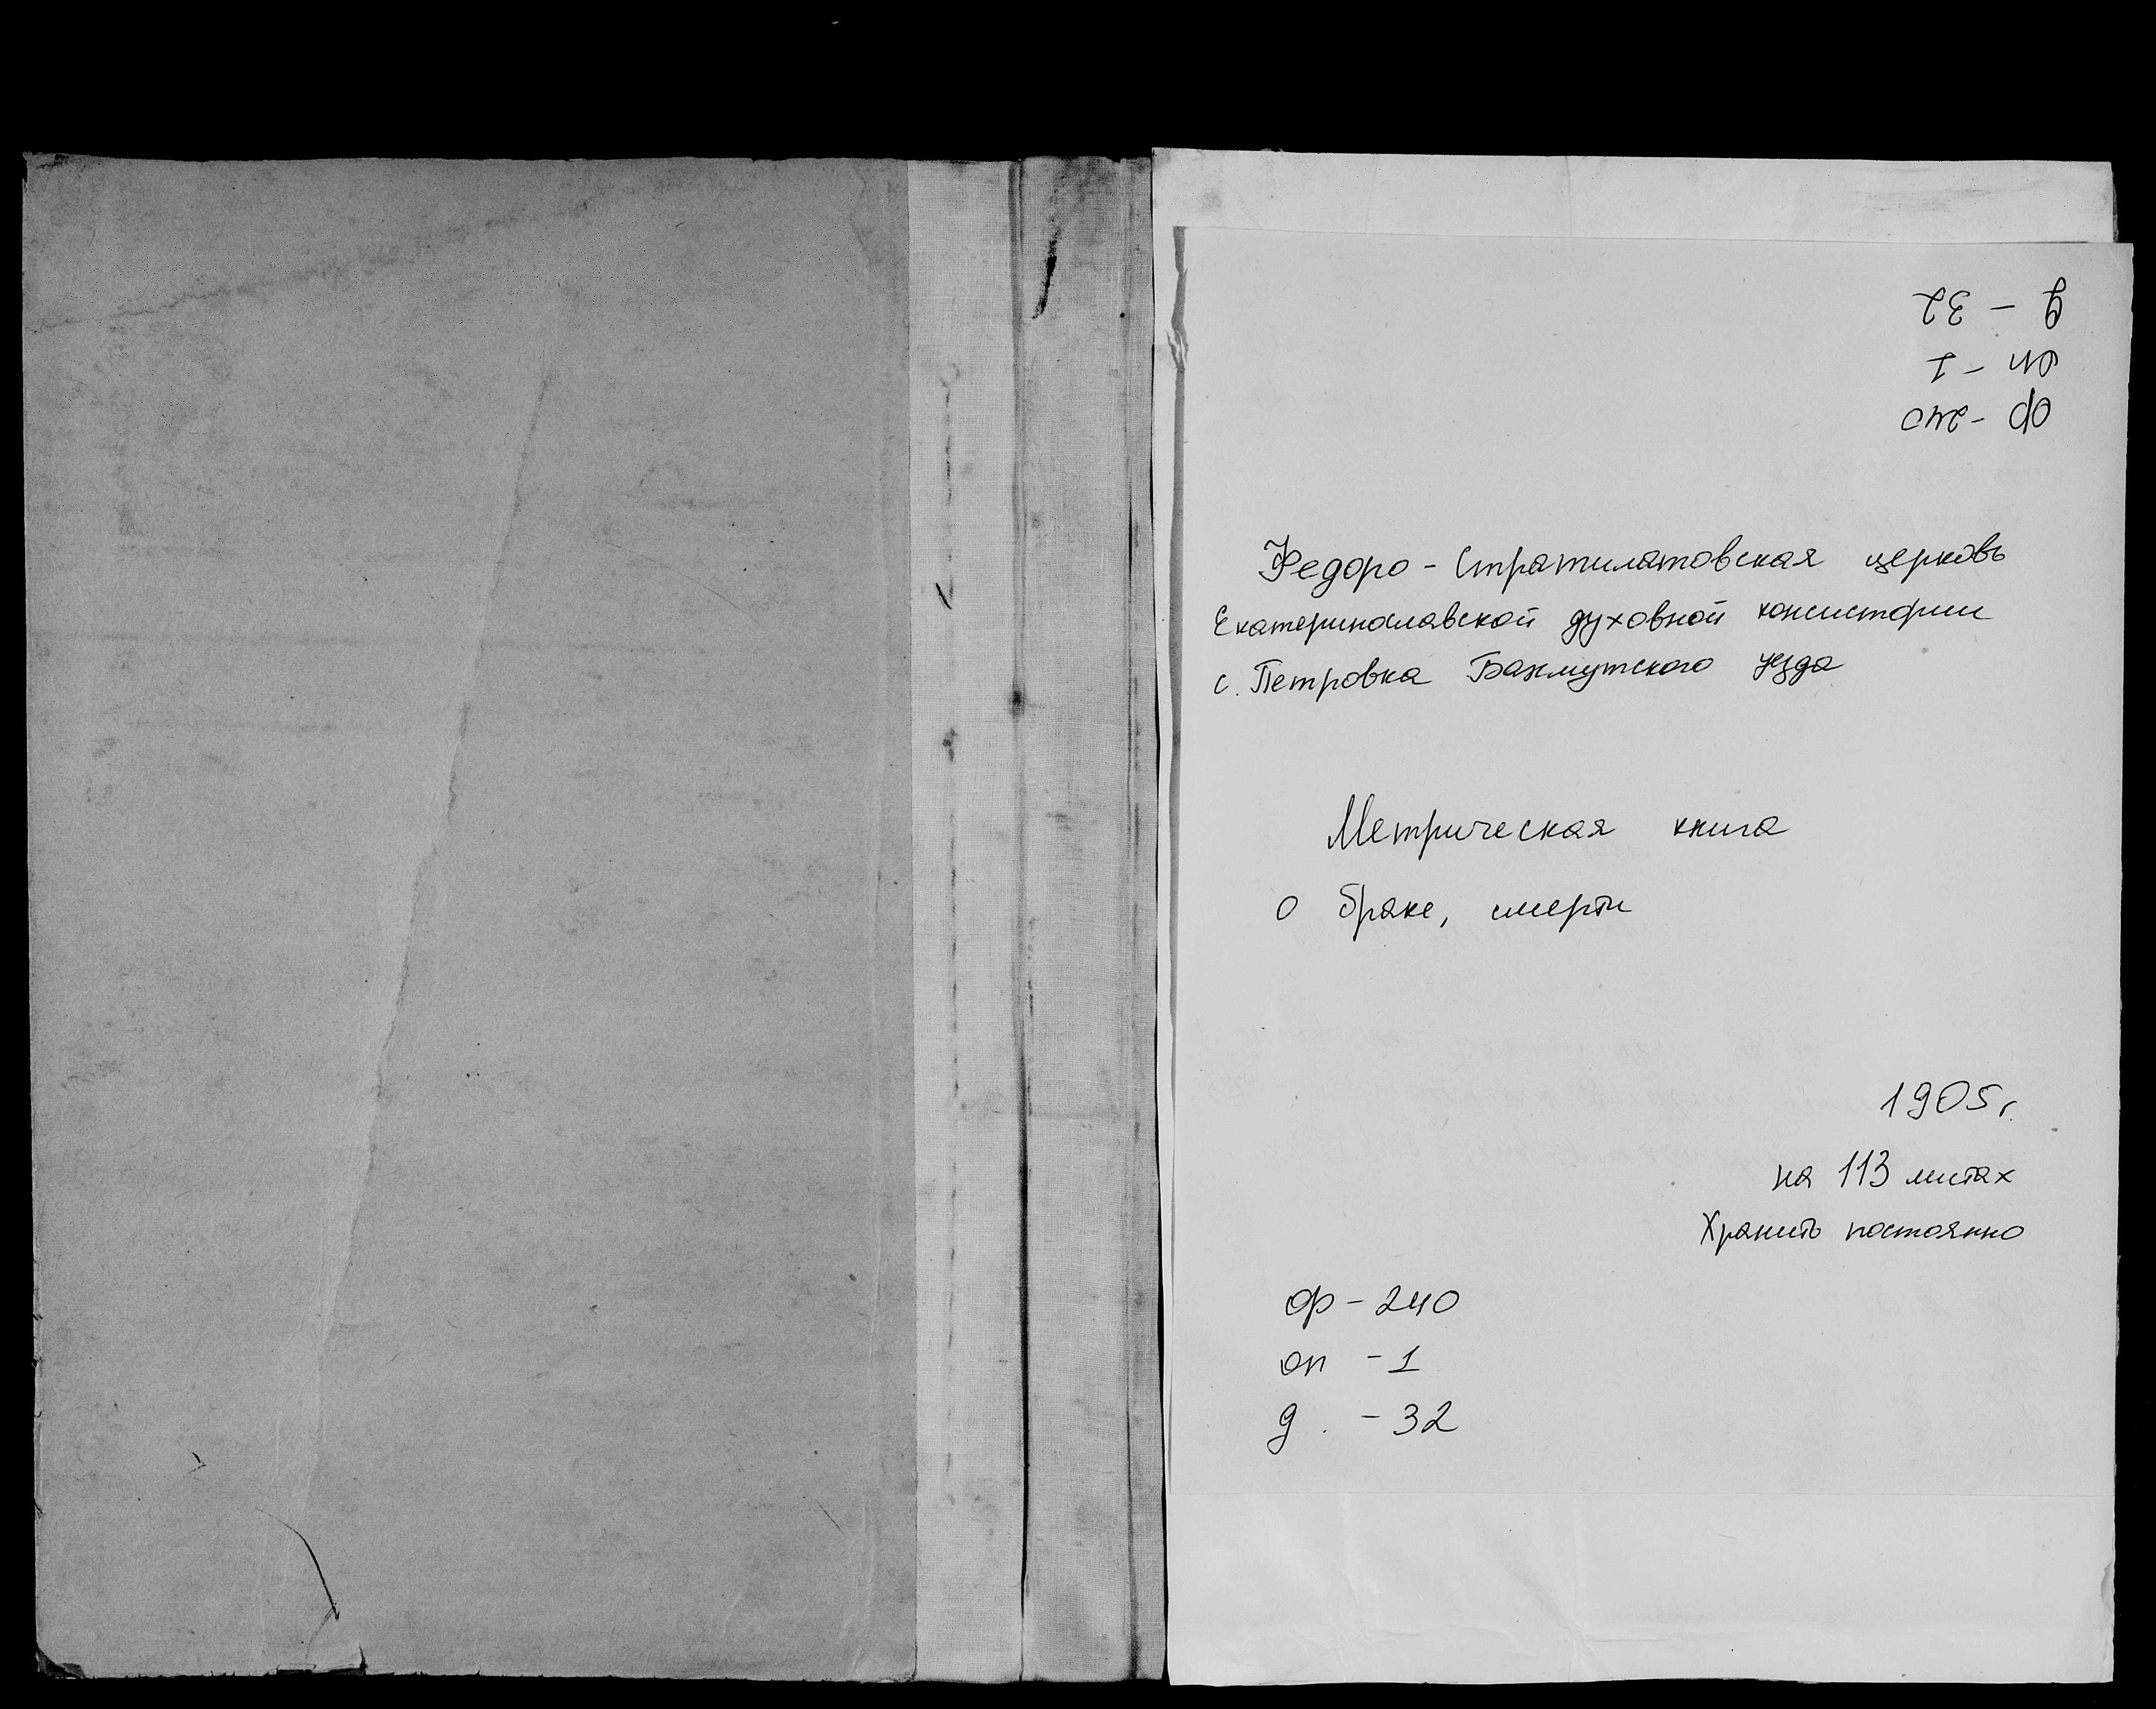 ф - 240
оп - 1
д - 32
Федоро - Стратилатовская церковь
Екатеринославской духовной консистории
с. Петровка Бахмутского уезда
Метрическая книга
о браке, смерти
1905 г.
на 113 листах
Хранить постоянно
ф - 240
оп - 1
д. - 32